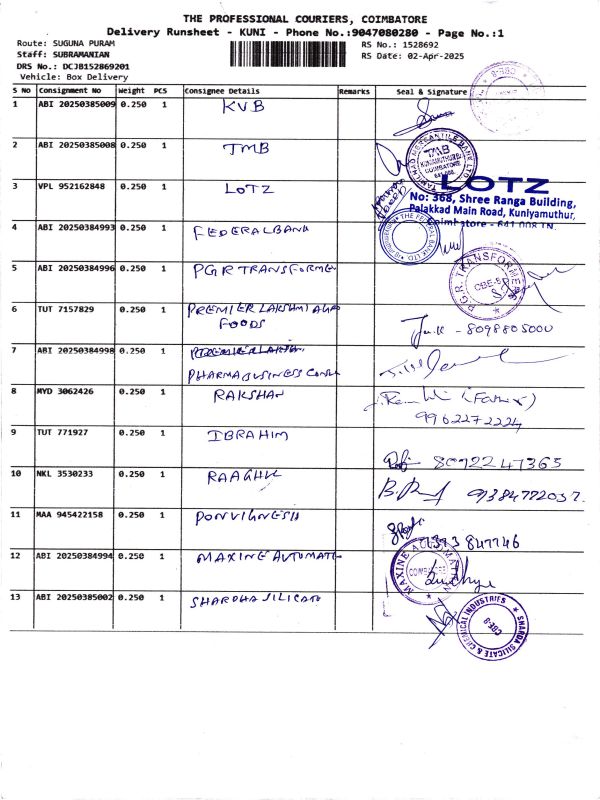 THE PROFESSIONAL COURIERS, COIMBATORE
Delivery Runsheet - KUNI - Phone No.:9047080280 - Page No.:1
Route: SUGUNA PURAM
RS No.: 1528692
Staff: SUBRAMANIAN
RS Date: 02-Apr-2025
DRS No.: DCJB152869201
Vehicle: Box Delivery
S No Consignment No Weight PCS Consignee Details Remarks Seal & Signature
1 ABI 20250385009 0.250 1 KVB
2 ABI 20250385008 0.250 1 TMB
TAMILNAD MERCANTILE BANK LTD
TMB
KUNIAMUTHUR
COIMBATORE
641 008
3 VPL 952162848 0.250 1 LOTZ
LOTZ
No: 368, Shree Ranga Building,
Palakkad Main Road, Kuniyamuthur,
Coimbatore - 641 008
4 ABI 20250384993 0.250 1 FEDERALBANK
THE FEDERAL BANK LTD
5 ABI 20250384996 0.250 1 PGR TRANSFORME
P.G.R. TRANSFORME
CBE-8
6 TUT 7157829 0.250 1 PREMIER LAKSHMI AGRO
FOODS
8098805000
7 ABI 20250384998 0.250 1
PHARMABUSINESS CONSU
8 MYD 3062426 0.250 1 RAKSHAN
(Father)
9962272224
9 TUT 771927 0.250 1 IBRAHIM
8092247365
10 NKL 3530233 0.250 1 RAAGHUL
9384772037
11 MAA 945422158 0.250 1 PONVIGNESH
12 ABI 20250384994 0.250 1 MAXINE AUTOMATE
MAXINE AUTOMATION
13 ABI 20250385002 0.250 1 SHARDHA SILICATE
SHARDA SILICATE & CHEMICAL INDUSTRIES
CBE-8